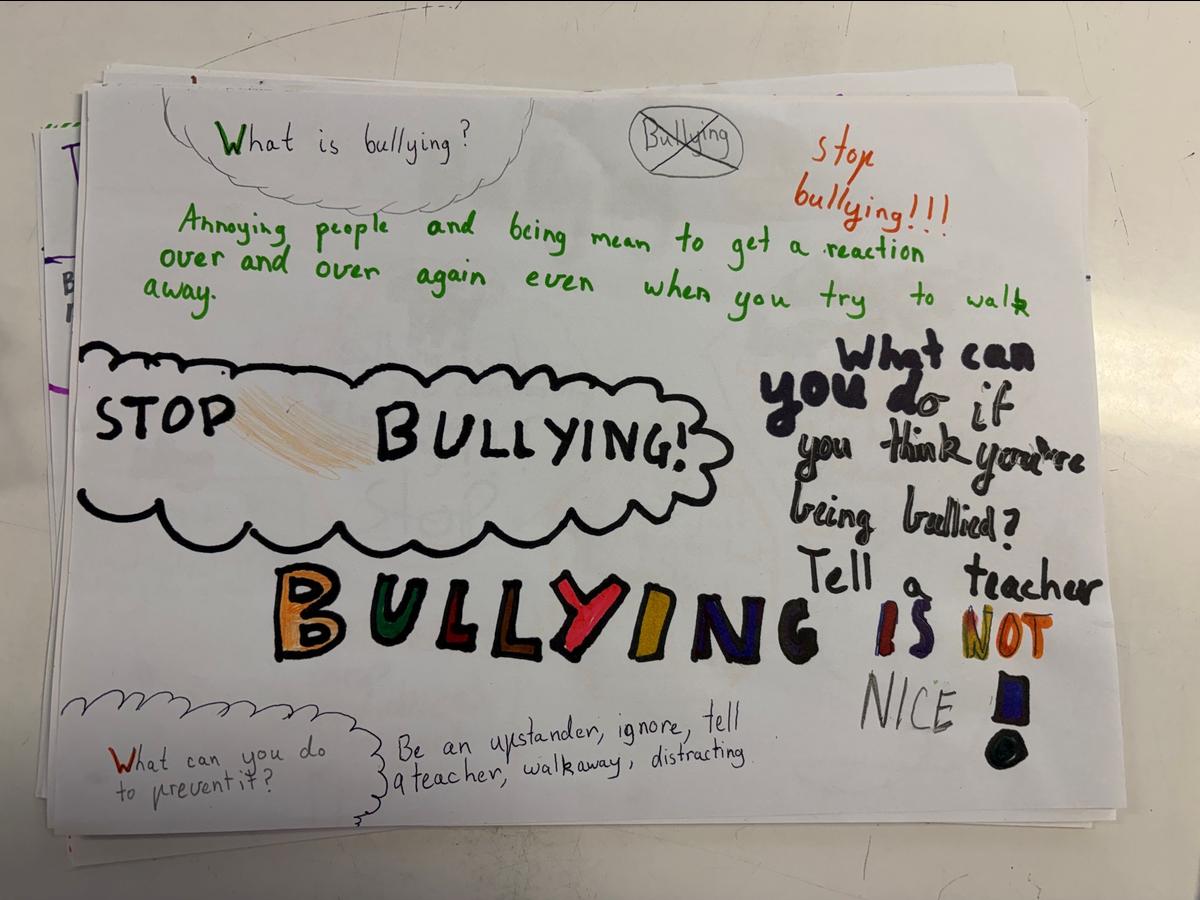 What is bullying?
Bullying
stop
bullying!!!
Annoying people and being mean to get a reaction
over and over again even when you try to walk
away.
STOP BULLYING!
What can
you do if
you think you're
being bullied?
Tell a teacher
BULLYING IS NOT
NICE!
What can you do
to prevent it?
Be an upstander, ignore, tell
a teacher, walk away, distracting